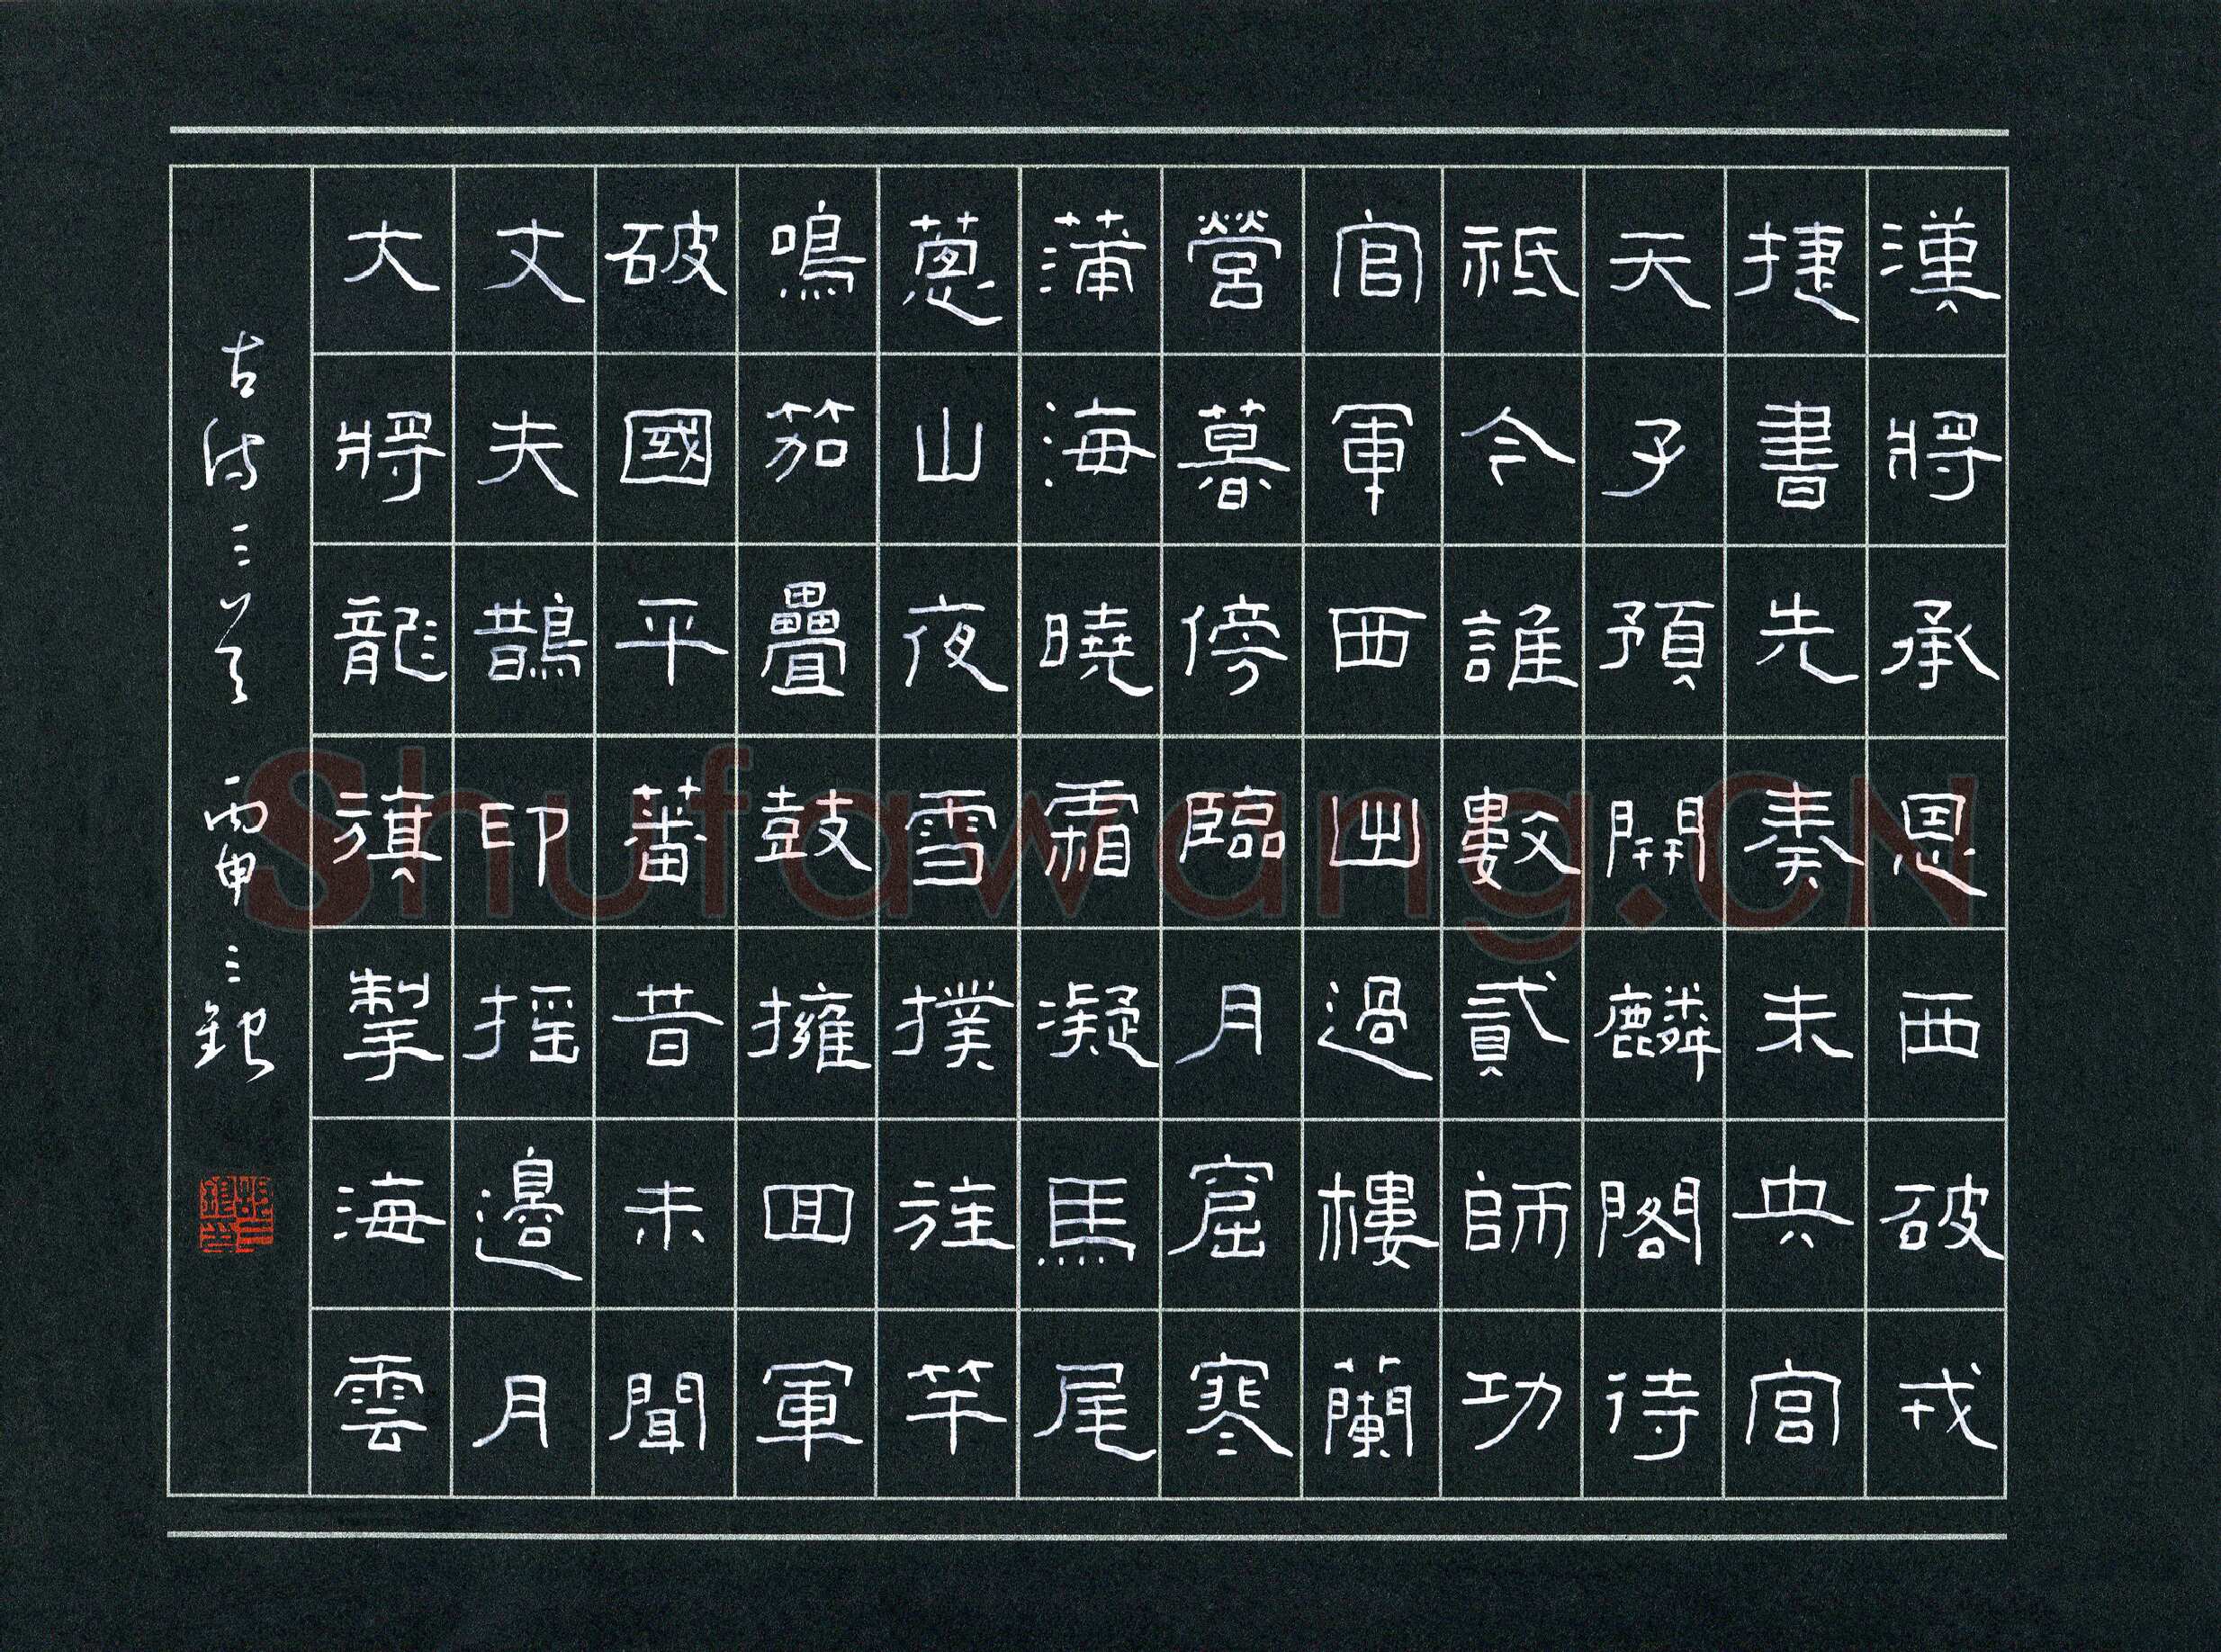 漢將承恩西破戎
捷書先奏未央宮
天子預開麟閣待
祗令誰數貳師功
官軍西出過樓蘭
營暮傍臨月窟寒
蒲海曉霜凝馬尾
蔥山夜雪撲旌竿
鳴笳疊鼓擁回軍
破國平蕃昔未聞
丈夫鵲印搖邊月
大將龍旗掣海雲
古詩三首 丙申三銀
Shufawang.CN